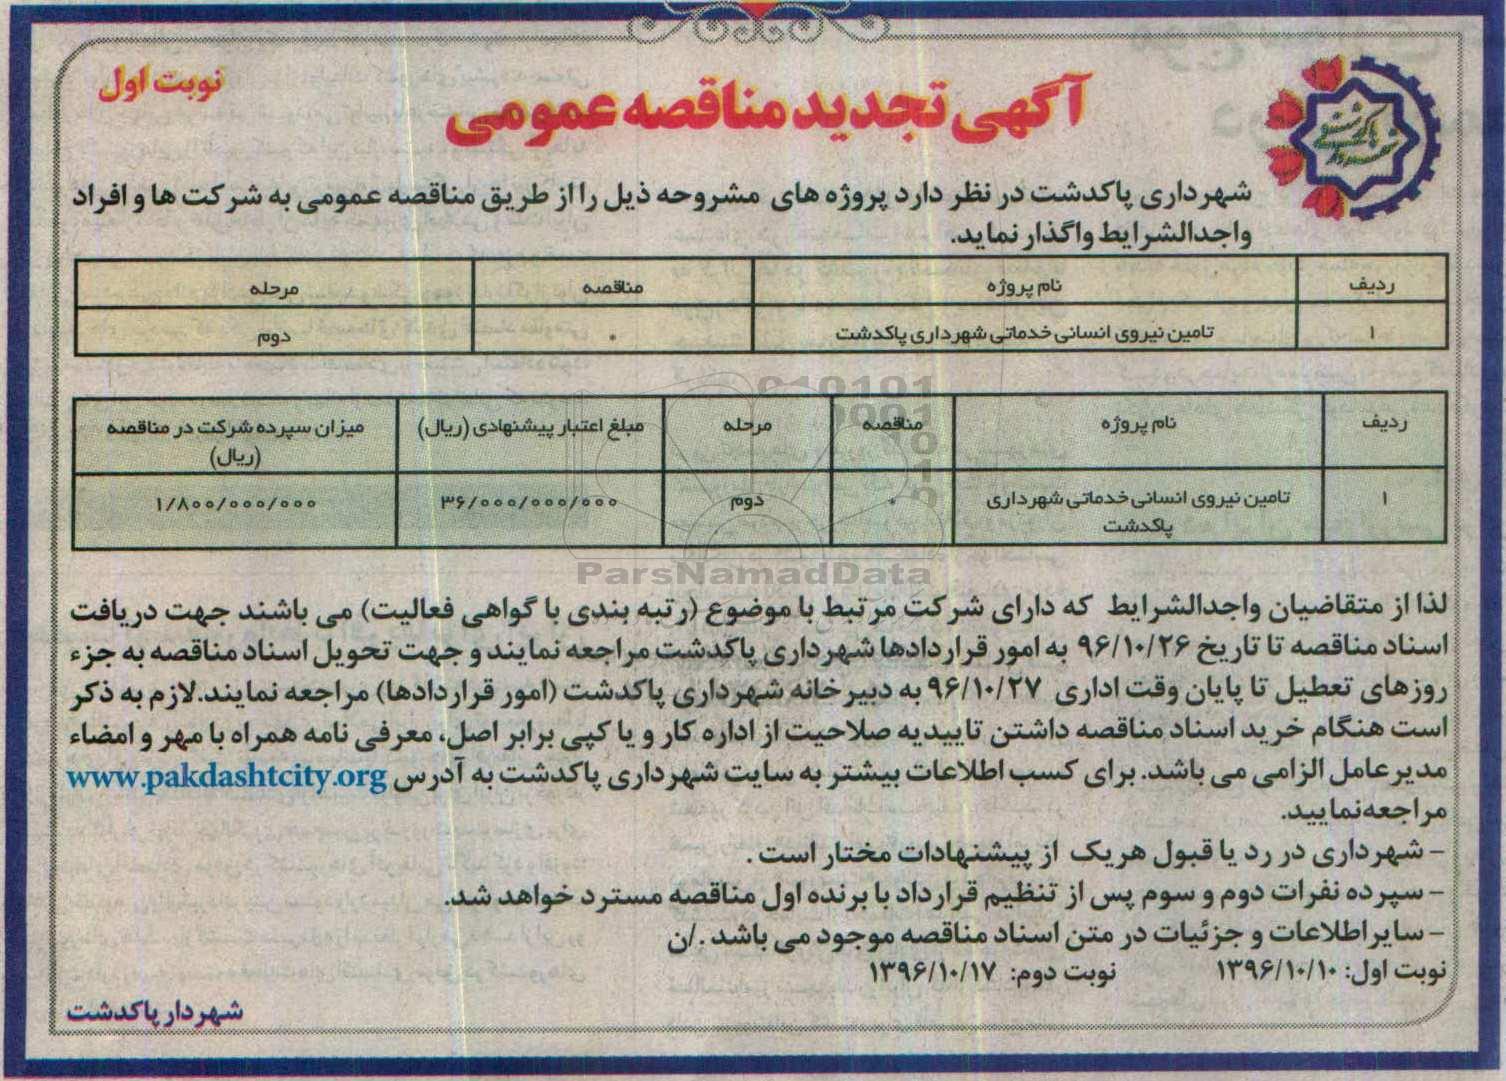 نوبت اول
آگهی تجدید مناقصه عمومی
شهرداری پاکدشت در نظر دارد پروژه های مشروحه ذیل را از طریق مناقصه عمومی به شرکت ها و افراد
واجدالشرایط واگذار نماید.
ردیف نام پروژه مناقصه مرحله
۱ تامین نیروی انسانی خدماتی شهرداری پاکدشت * دوم
ردیف نام پروژه مناقصه مرحله مبلغ اعتبار پیشنهادی (ریال) میزان سپرده شرکت در مناقصه
(ریال)
۱ تامین نیروی انسانی خدماتی شهرداری * دوم ۳۶/۰۰۰/۰۰۰/۰۰۰ ۱/۸۰۰/۰۰۰/۰۰۰
پاکدشت
ParsNamadData
لذا از متقاضیان واجدالشرایط که دارای شرکت مرتبط با موضوع (رتبه بندی با گواهی فعالیت) می باشند جهت دریافت
اسناد مناقصه تا تاریخ ۹۶/۱۰/۲۶ به امور قراردادها شهرداری پاکدشت مراجعه نمایند و جهت تحویل اسناد مناقصه به جزء
روزهای تعطیل تا پایان وقت اداری ۹۶/۱۰/۲۷ به دبیرخانه شهرداری پاکدشت (امور قراردادها) مراجعه نمایند.لازم به ذکر
است هنگام خرید اسناد مناقصه داشتن تاییدیه صلاحیت از اداره کار و یا کپی برابر اصل، معرفی نامه همراه با مهر و امضاء
مدیرعامل الزامی می باشد. برای کسب اطلاعات بیشتر به سایت شهرداری پاکدشت به آدرس www.pakdashtcity.org
مراجعه‌نمایید.
- شهرداری در رد یا قبول هریک از پیشنهادات مختار است .
- سپرده نفرات دوم و سوم پس از تنظیم قرارداد با برنده اول مناقصه مسترد خواهد شد.
- سایر اطلاعات و جزئیات در متن اسناد مناقصه موجود می باشد ./ن
نوبت اول: ۱۳۹۶/۱۰/۱۰ نوبت دوم: ۱۳۹۶/۱۰/۱۷
شهردار پاکدشت